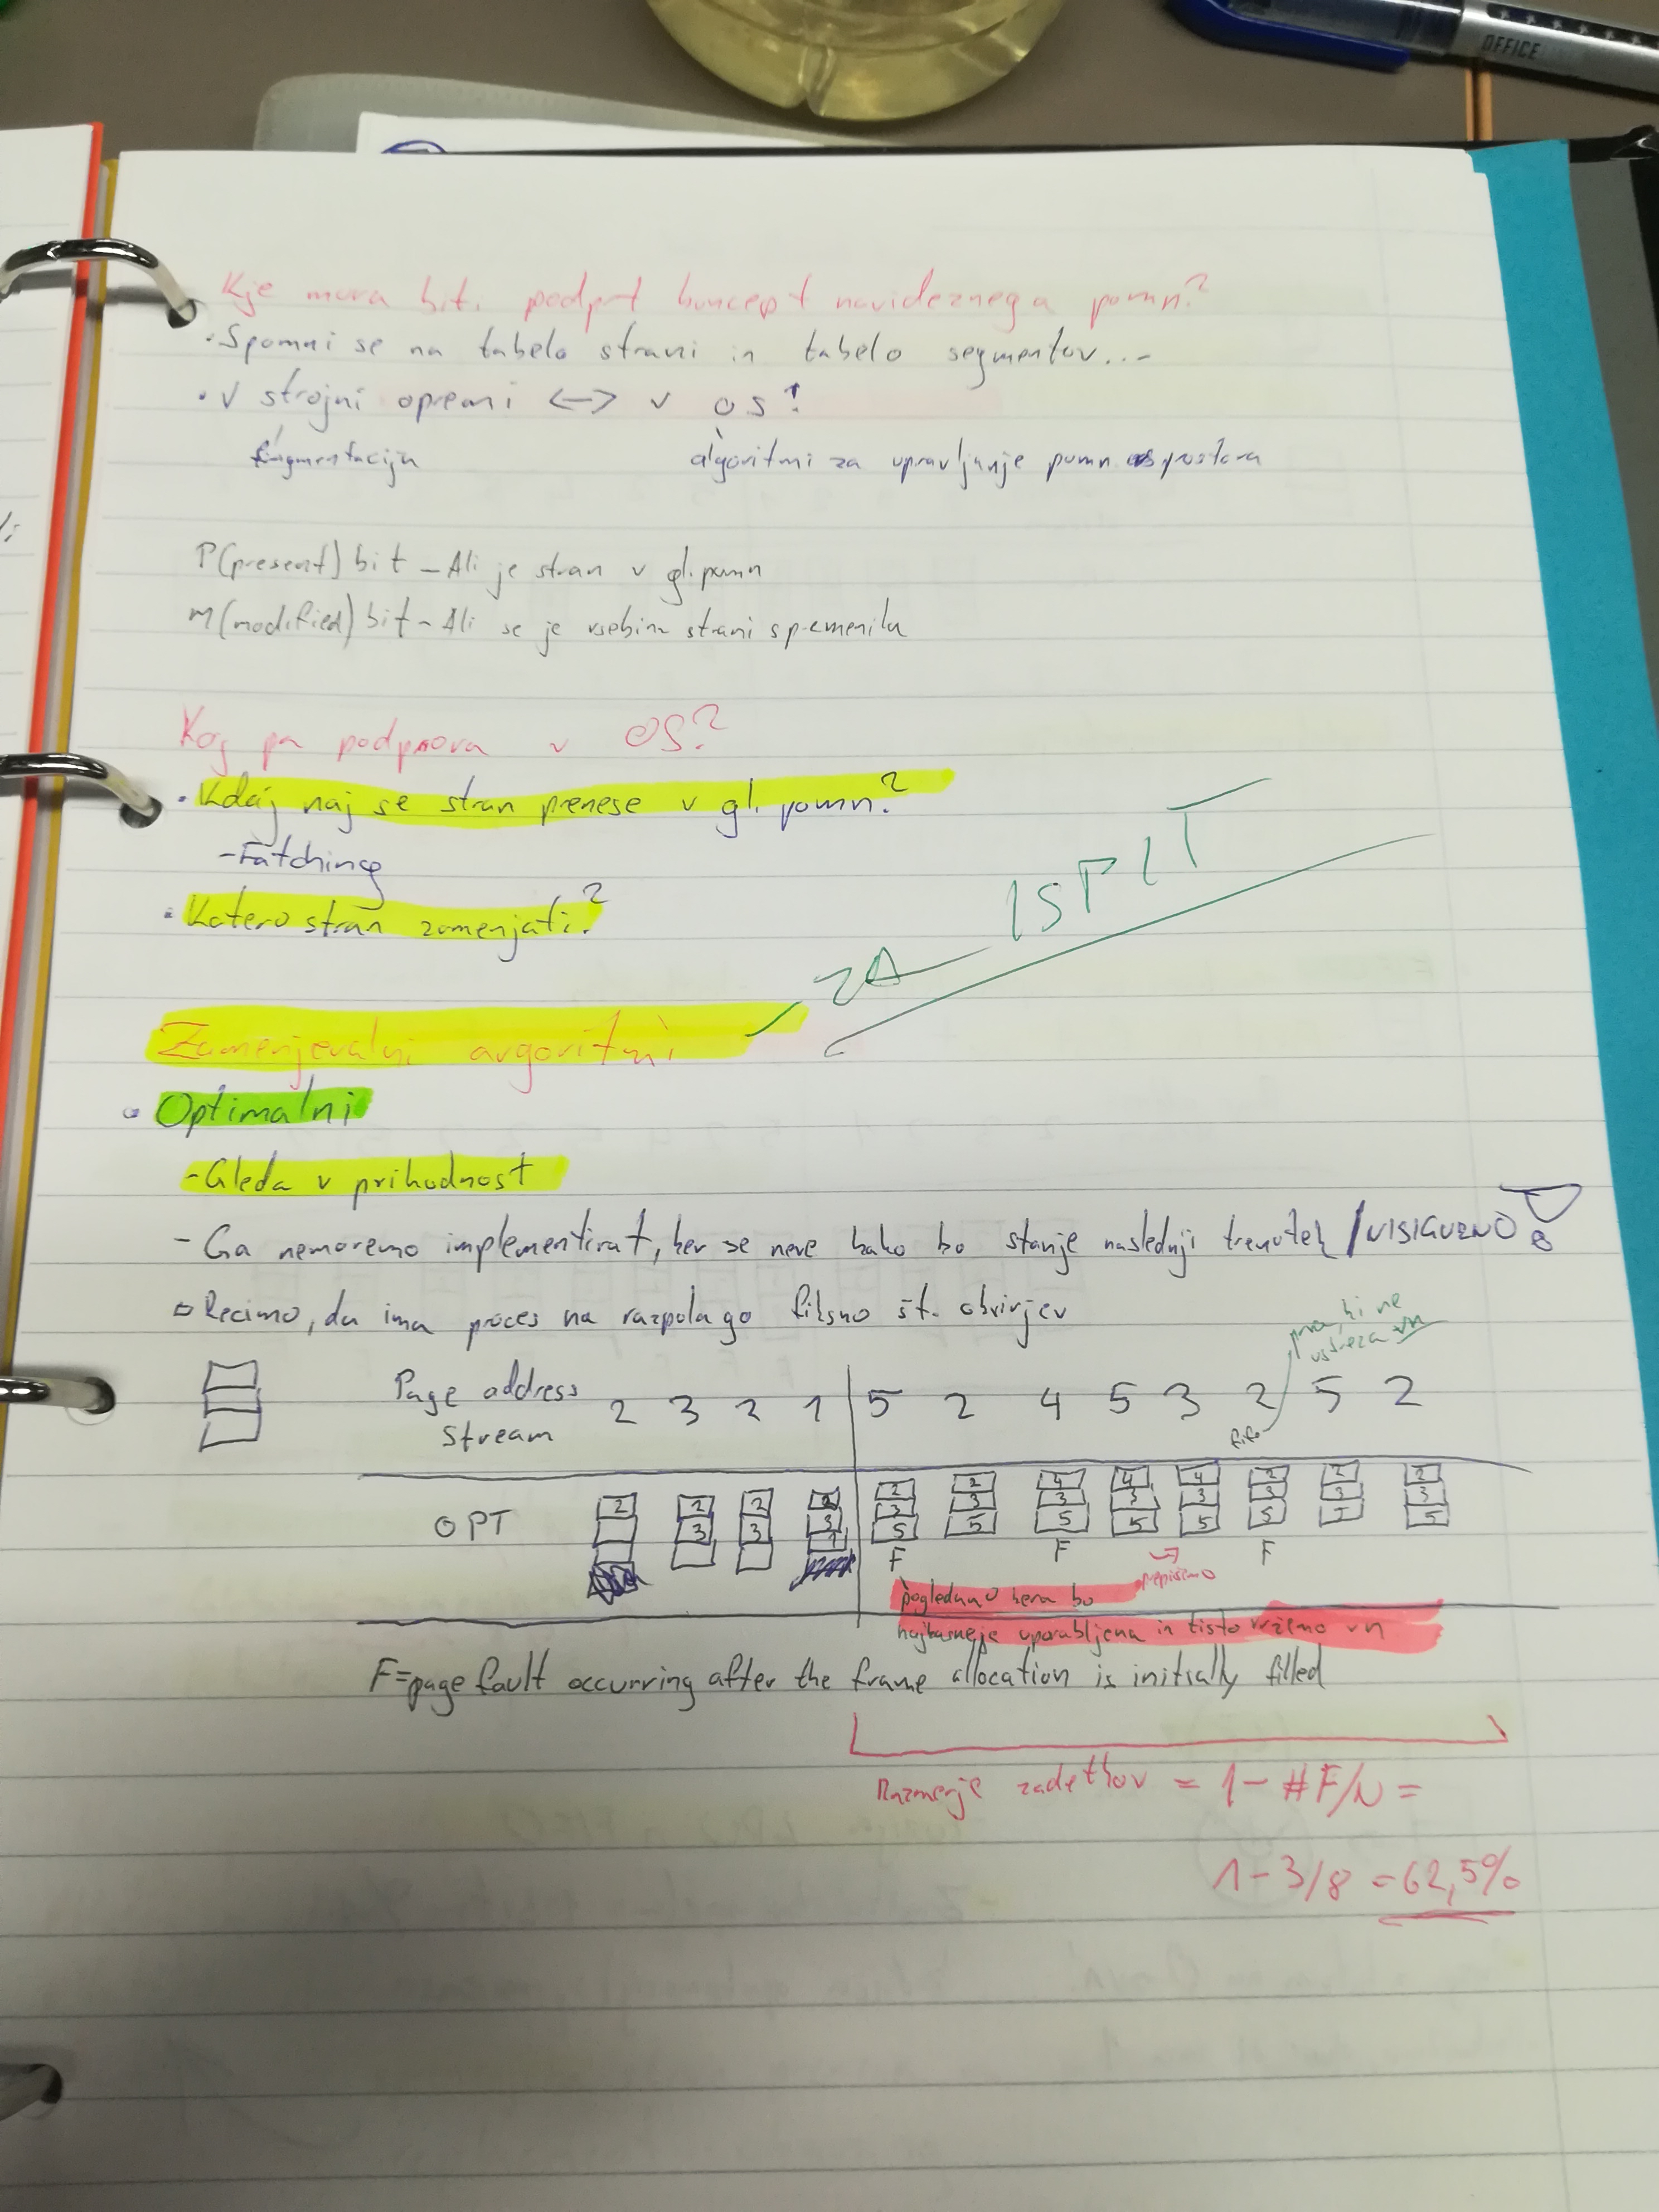 OFFICE
Kje mora bit. podprt koncept navideznega pomn?
• Spomni se na tabelo strani in tabelo segmentov...
• V strojni opremi <-> v OS!
fragmentacija algoritmi za upravljanje pomn prostora
P(present) bit - Ali je stran v gl. pomn
M(modified) bit - Ali se je vsebina strani spremenila
Kaj pa podpora v OS?
• Kdaj naj se stran prenese v gl. pomn.?
- Fatching
• Katero stran zamenjati.?
ZA ISPIT
Zamenjevalni argoritmi
• Optimalni
- Gleda v prihodnost
- Ga nemoremo implementirat, ker se neve kako bo stanje naslednji trenutek /
Recimo, da ima proces na razpolago fiksno št. okvirjev
prva, ki ne
ustreza vn
Page address 2 3 2 1 5 2 4 5 3 2 5 2
Stream
fifo
OPT
2 2 2 2 2 2 4 4 4 2 2 2
3 3 3 3 3 3 3 3 3 3 3
1 5 5 5 5 5 5 5
F F F
prepišemo
pogledamo kera bo
najkasneje uporabljena in tisto vržemo vn
F=page fault occurring after the frame allocation is initially filled
Razmerje zadetkov = 1 - #F/N =
1 - 3/8 = 62,5%